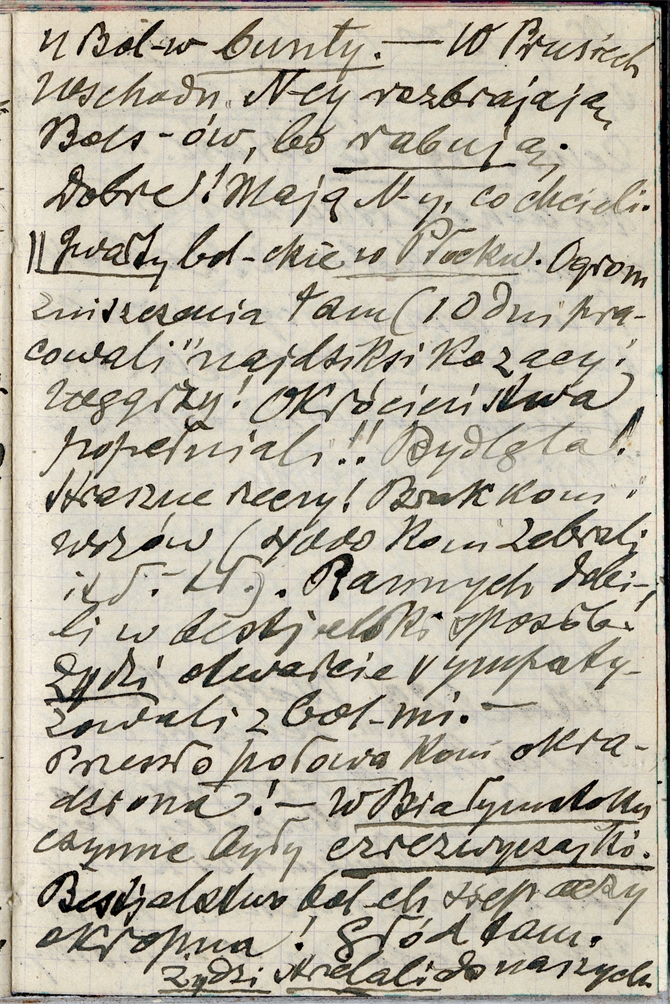 u Bol-w bunty. — W Prusiech
Wschodn. N-cy rozbrajają
Bols-ów, bo rabują.
Dobre! Mają N-y, co chcieli.
|| Gwałty bol-ckie w Płocku. Ogrom
zniszczenia tam (10 dni pra-
cowali" najdziksi Kozacy!
Węgrzy! Okrócieństwa
popełniali!! Bydlęta!
Straszne rzeczy! Brak koni i
wozów (4000 koni zebrali
i t d. - t d). Rannych dobi-
li w bestjalski sposób.
Żydzi otwarcie sympaty-
zowali z bol-mi. —
Przeszło połowa koni okra-
dziona! — W Białymstoku
czynne były czrezwyczajki.
Bestjalstwo bol-ch
okropna! Głód tam.
Żydzi strzelali do naszych